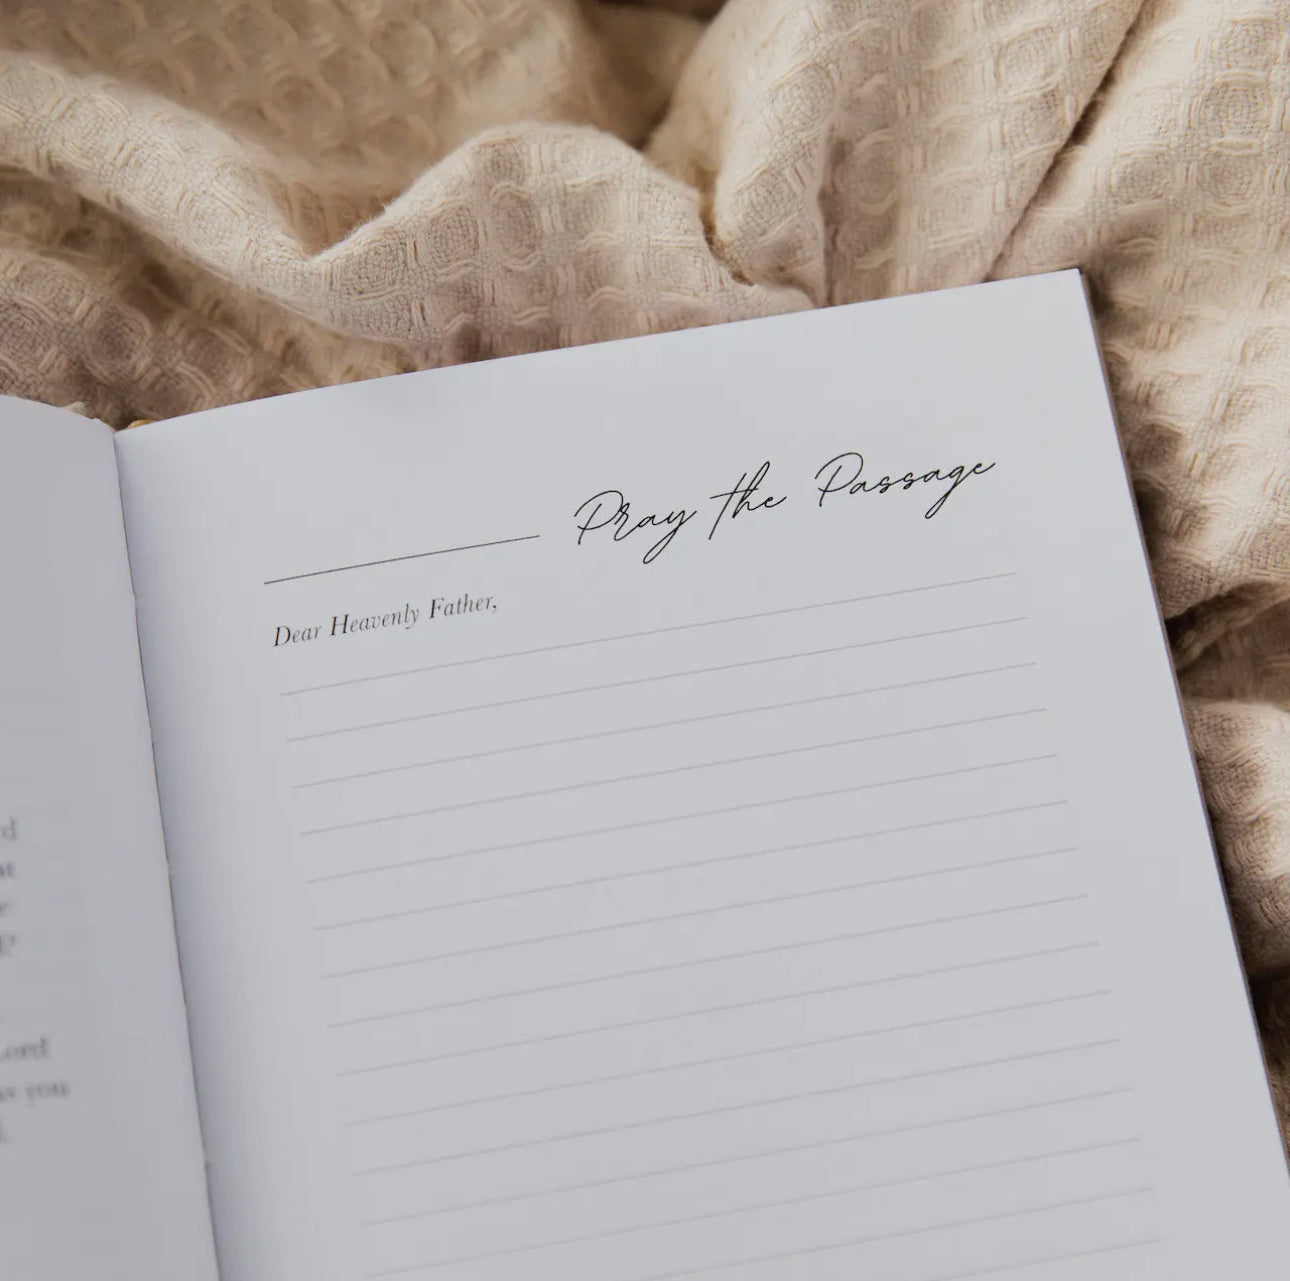 Lord
you
Pray the Passage
Dear Heavenly Father,